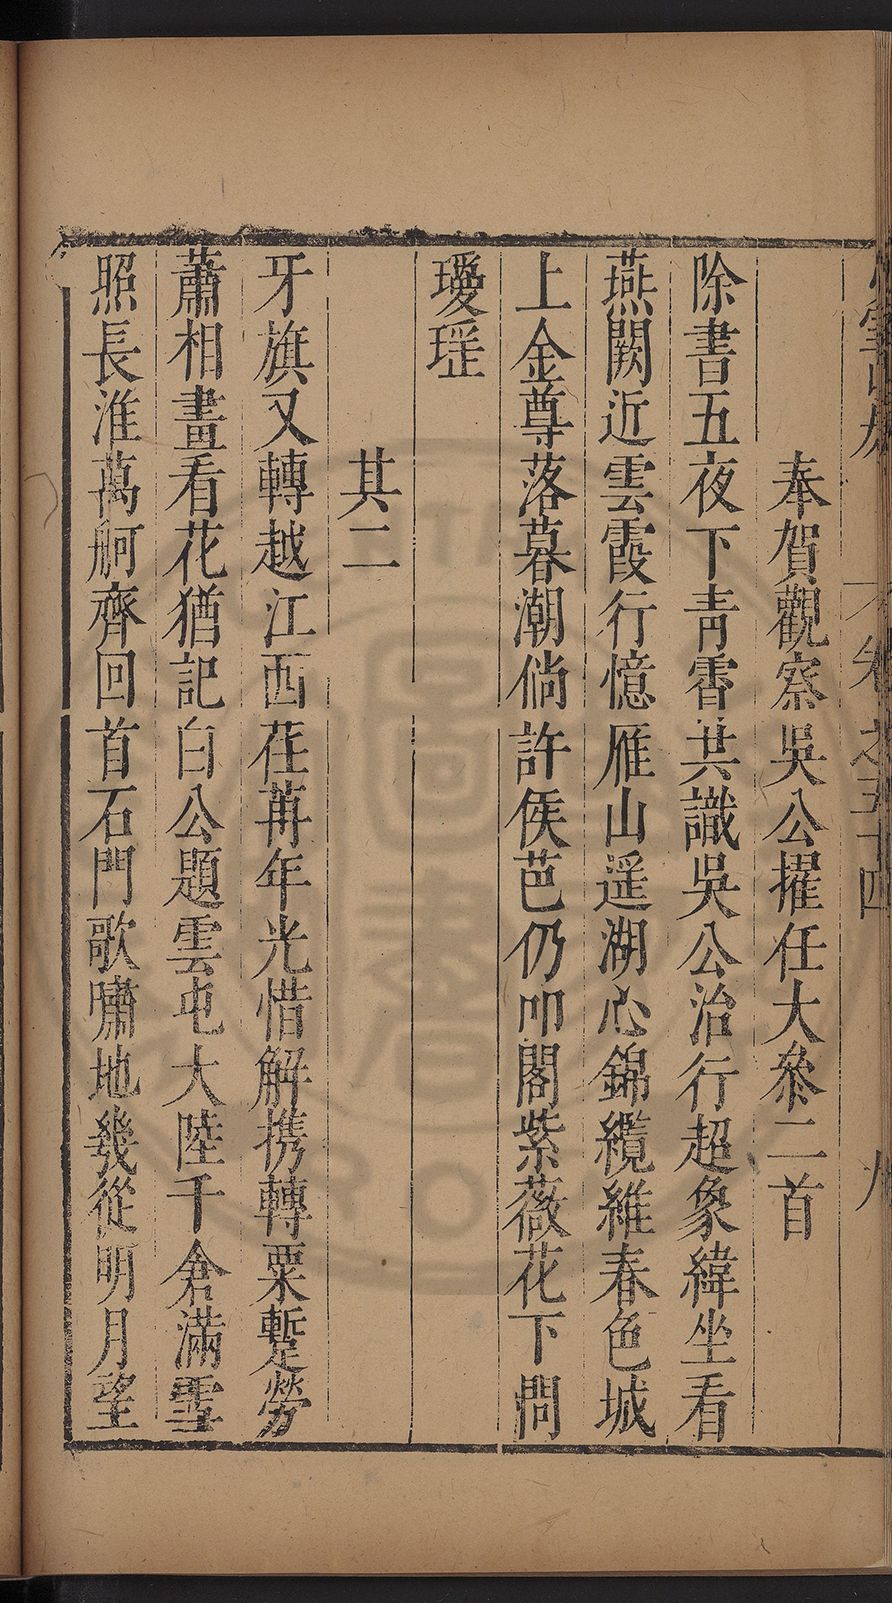 卷之五十四
奉賀觀察吳公擢任大叅二首
除書五夜下青霄共識吳公治行超象緯坐看
燕闕近雲霞行憶雁山遥湖心錦纜維春色城
上金尊落暮潮倘許侯芭仍叩閣紫薇花下問
璦瑆
其二
牙旗又轉越江西荏苒年光惜解携轉粟蹔勞
蕭相畫看花猶記白公題雲屯大陸千倉滿雪
照長淮萬舸齊回首石門歌嘯地幾從明月望